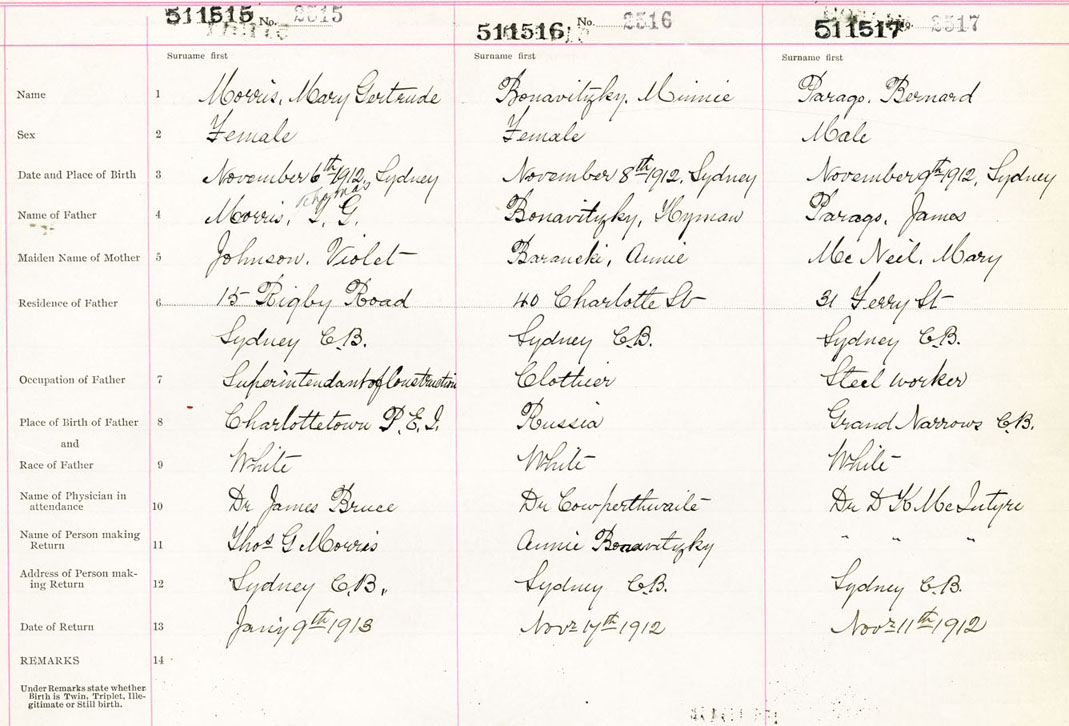 511515 No. 2515 511516 No. 2516 511517 No. 2517
Surname first Surname first Surname first
Name 1 Morris, Mary Gertrude Bonavitzky, Minnie Parago, Bernard
Sex 2 Female Female Male
Date and Place of Birth 3 November 6th 1912, Sydney November 8th 1912, Sydney November 9th 1912, Sydney
Thomas
Name of Father 4 Morris, T. G. Bonavitzky, Hyman Parago, James
Maiden Name of Mother 5 Johnson, Violet Baranski, Annie McNeil, Mary
Residence of Father 6 15 Rigby Road 40 Charlotte St 31 Ferry St
Sydney C.B. Sydney C.B. Sydney C.B.
Occupation of Father 7 Superintendant of Construction Clothier Steel worker
Place of Birth of Father 8 Charlottetown P.E.I. Russia Grand Narrows C.B.
and
Race of Father 9 White White White
Name of Physician in
attendance 10 Dr James Bruce Dr Cowperthwaite Dr D K McIntyre
Name of Person making
Return 11 Thos G Morris Annie Bonavitzky " " "
Address of Person mak-
ing Return 12 Sydney C.B. Sydney C.B. Sydney C.B.
Date of Return 13 Jany 9th 1913 Novr 17th 1912 Novr 11th 1912
REMARKS 14
Under Remarks state whether
Birth is Twin, Triplet, Ille-
gitimate or Still birth.